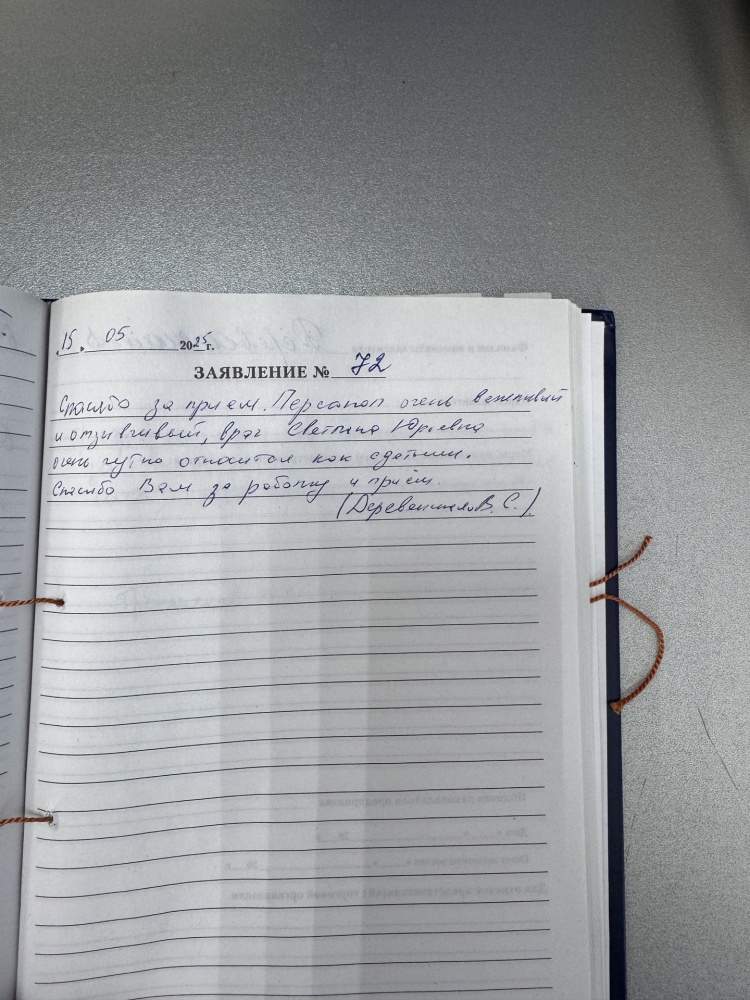 15. 05 2025г.
ЗАЯВЛЕНИЕ № 72
Спасибо за прием. Персонал очень вежливый
и отзывчивый, врач Светлана Юрьевна
очень чутко относится как с детьми.
Спасибо Вам за работу и приём.
В. С.).
Подпись руководителя предприятия